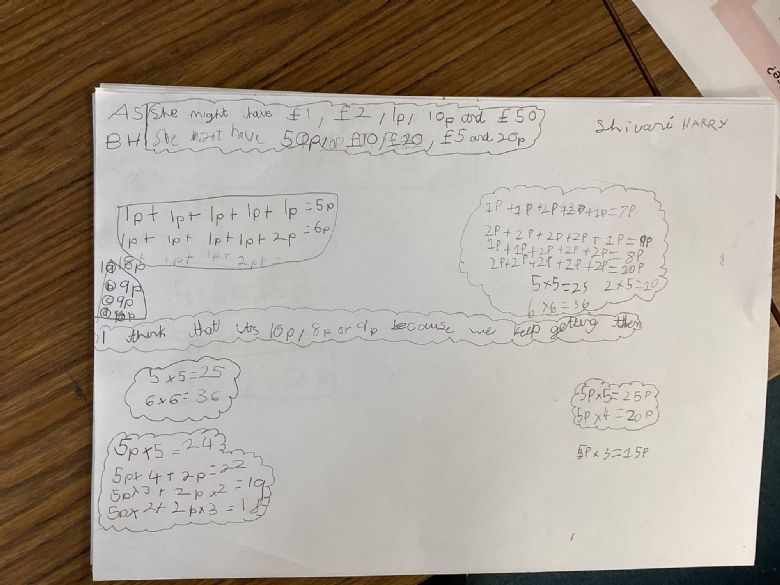 AS She might have £1, £2, 1p, 10p and £50
BH She might have 50p, or £10, £20, £5 and 20p
Shivani HARRY
1p + 1p + 1p + 1p + 1p = 5p
1p + 1p + 1p + 1p + 2p = 6p
1p + 1p + 2p =
18p
9p
9p
1P + 1P + 2P + 2P + 1P = 7P
2P + 2P + 2P + 2P + 1P = 9P
1P + 1P + 2P + 2P + 2P = 8P
2P + 2P + 2P + 2P + 2P = 10P
5 x 5 = 25 2 x 5 = 10
6 x 6 = 36
I think that its 10p, 8p or 9p because we keep getting them
5 x 5 = 25
6 x 6 = 36
5p x 5 = 243
5p x 4 + 2p = 22
5p x 3 + 2p x 2 = 19
5p x 2 + 2p x 3 = 18
5P x 5 = 25P
5P x 4 = 20P
5P x 3 = 15P